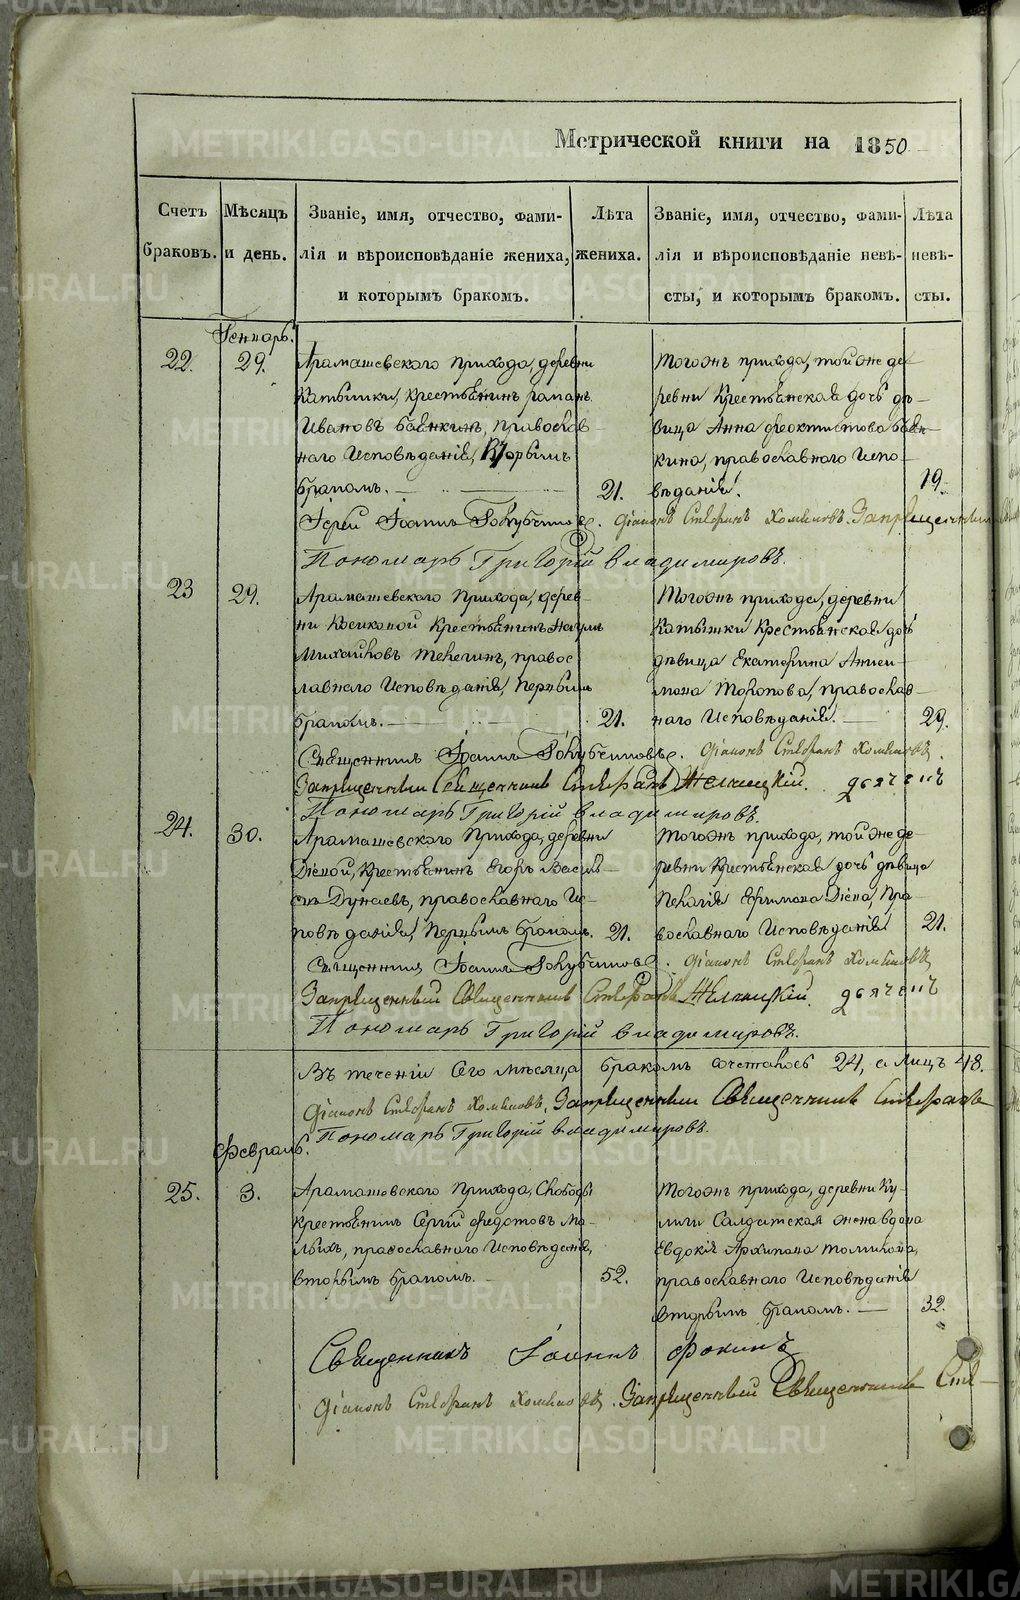 Метрической книги на 1850
Счетъ браковъ.
Мѣсяцъ и день.
Званіе, имя, отчество, фами-
лія и вѣроисповѣданіе жениха,
и которымъ бракомъ.
Лѣта жениха.
Званіе, имя, отчество, фами-
лія и вѣроисповѣданіе невѣ-
сты, и которымъ бракомъ.
Лѣта невѣ-
сты.
Генварь.
22.
29.
Арамашевскаго прихода, деревни
крестьянинъ романъ
Ивановъ православ-
наго Исповѣданія, Вторымъ
бракомъ.
21.
Тогожъ прихода, той же де-
ревни Крестьянская дочь дѣ-
вица Анна феоктистова
кина, православнаго Испо-
вѣданія.
19.
Іерей Іоаннъ діаконъ Стефанъ Запрещенный
Пономарь Григорій владимировъ.
23
29.
Арамашевскаго Прихода, дерев-
ни Крестьянинъ Наумъ
Михайловъ правос-
лавнаго Исповѣданія, Первымъ
бракомъ.
21.
Тогожъ прихода, деревни
Крестьянская дочь
дѣвица Екатерина Аниси-
мова Торопова, православ-
наго Исповѣданія.
29.
Священникъ Іоаннъ діаконъ Стефанъ
Запрещенный Священникъ Стефанъ
Пономарь Григорій владимировъ.
24.
30.
Арамашевскаго Прихода, деревни
Діевой, Крестьянинъ Егоръ Василь-
евъ Дунаевъ, православнаго Ис-
повѣданія, Первымъ бракомъ.
21.
Тогожъ прихода, той же де-
ревни Крестьянская дочь дѣвица
Пелагія Ефимова Діева, Пра-
вославнаго Исповѣданія
21.
Священникъ Іоаннъ діаконъ Стефанъ
Запрещенный Священникъ Стефанъ
Пономарь Григорій владимировъ.
Въ теченіи Сего мѣсяца бракомъ сочеталось 24, а Лицъ 48.
діаконъ Стефанъ Запрещенный Священникъ Стефанъ
Пономарь Григорій владимировъ.
Февраль.
25.
3.
Арамашевскаго Прихода, Слободы
крестьянинъ Сергій федотовъ Ма-
лыхъ, православнаго Исповѣданія,
вторымъ бракомъ.
52.
Тогожъ прихода, деревни Ку-
лиги Салдатская жена вдова
Евдокія Архипова Томилова,
православнаго Исповѣданія
вторымъ бракомъ.
32.
Священникъ Іоаннъ Фокинъ
діаконъ Стефанъ Запрещенный Священникъ Сте-
METRIKI.GASO-URAL.RU